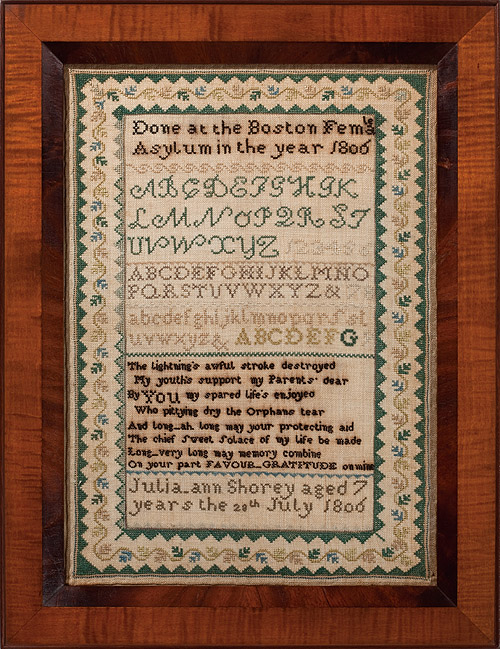 Done at the Boston Femal
Asylum in the year 1806
ABCDEFGHIJK
LMNOPQRST
UVWXYZ 123456
ABCDEFGHIJKLMNO
PQRSTUVWXYZ&
abcdefghijklmnopqrsſst
uvwxyz& ABCDEFG
The lightning's awful stroke destroyed
My youth's support my Parents' dear
By YOU my spared life's enjoyed
Who pittying dry the Orphans tear
And long_ah long may your protecting aid
The chief sweet solace of my life be made
Long_very long may memory combine
On your part FAVOUR_GRATITUDE on mine
Julia_ann Shorey aged 7
years the 20th July 1806